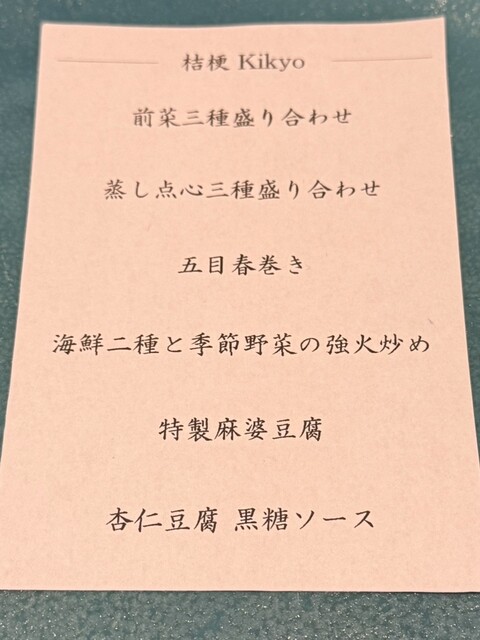 桔梗 Kikyo
前菜三種盛り合わせ
蒸し点心三種盛り合わせ
五目春巻き
海鮮二種と季節野菜の強火炒め
特製麻婆豆腐
杏仁豆腐 黒糖ソース